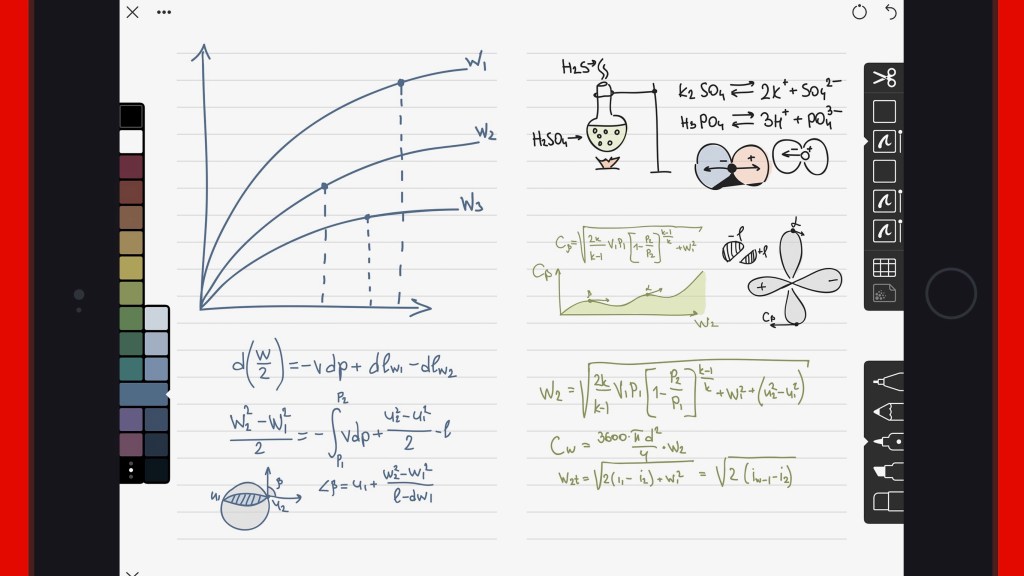 W₁
W₂
W₃
d(W/2) = -vdp + dl_w₁ - dl_w₂
(W₂² - W₁²)/2 = -∫_P₁^P₂ vdp + (u₂² - u₁²)/2 - l
u₁
β
u₂
∠β = u₁ + (w₂² - w₁²)/(l - dw₁)
H₂S→
H₂SO₄→
K₂SO₄ ⇌ 2K⁺ + SO₄²⁻
H₃PO₄ ⇌ 3H⁺ + PO₄³⁻
- +
- +
Cᵦ = √(2k/(k-1) V₁P₁ [1 - P₂/P₂]^((k-1)/k) + W₁²
Cᵦ
β
α
W₂
-l
+l
α
+
-
Cᵦ
W₂ = √(2k/(k-1) V₁P₁ [1 - P₂/P₁]^((k-1)/k) + W₁² + (u₂² - u₁²)
C_w = (3600·πd²)/4 · W₂
W₂t = √(2(i₁ - i₂) + w₁²) = √(2(i_w-1 - i₂))